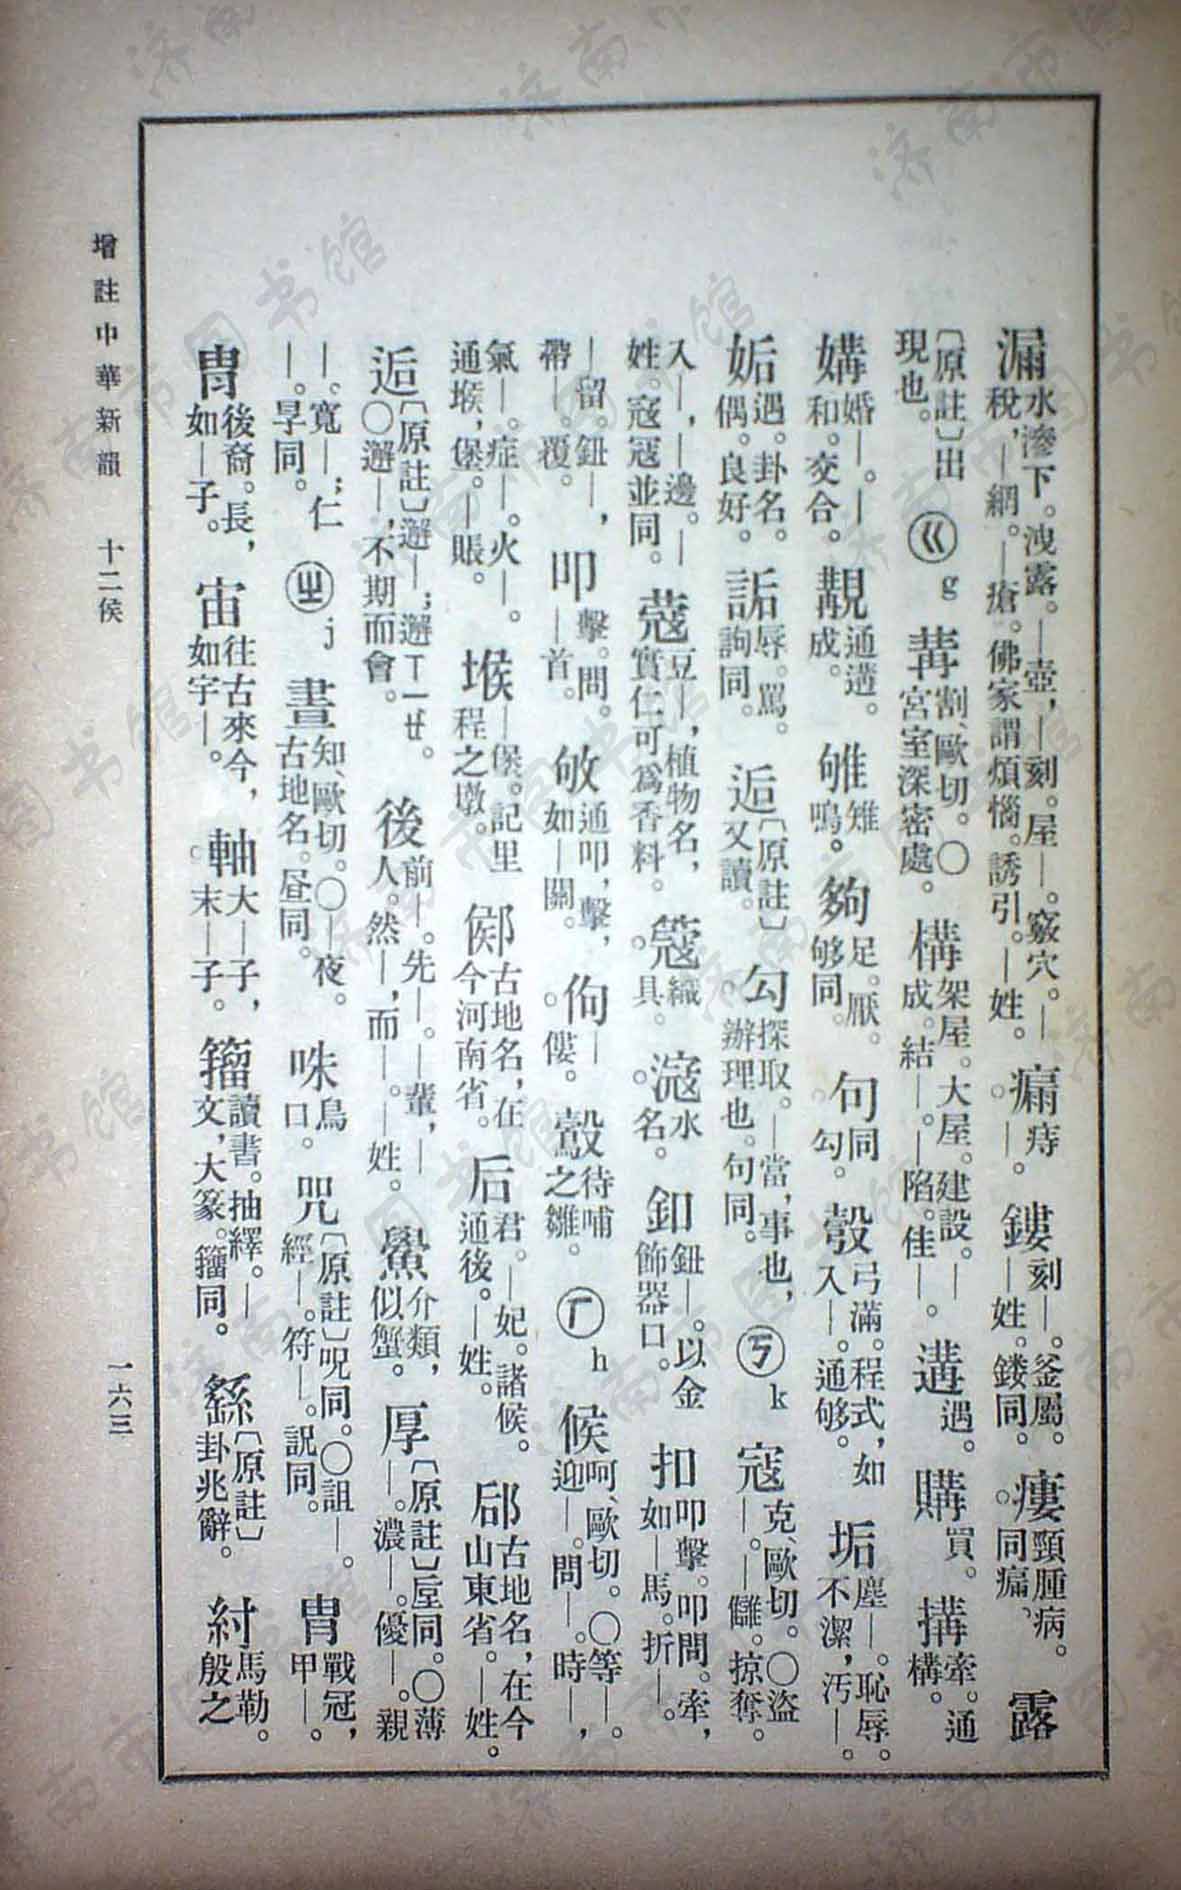 漏水滲下。洩露。—壺，—刻。屋—。竅穴。—稅，—網。—瘡。佛家謂煩惱。誘引。—姓。 瘺痔—。 鏤刻—。釜屬。—姓。鏤同。 瘻頸腫病。同瘺。 露
〔原註〕出現也。 ㄍg 冓割、歐切。○宮室深密處。 構架屋。大屋。建設。—成。結—。—陷。佳—。 遘遇。 購買。 搆牽。通構。
媾婚—。—和。交合。 覯通遘。成。 雊雉鳴。 夠足。厭。够同。 句同勾。 彀弓滿。程式，如入—。通够。 垢塵—。恥辱。不潔，污—。
姤遇。卦名。偶。良好。 詬辱。罵。詢同。 逅〔原註〕又讀。 勾探取。—當，事也，辦理也。句同。 ㄎk 寇克、歐切。○盜—。—讎。掠奪。
入—，—邊。—姓。寇寇並同。 蔻豆—，植物名，實仁可爲香料。 簆織具。 滱水名。 釦鈕—。以金飾器口。 扣叩擊。叩問。牽，如—馬。折—。
—留。鈕—，帶—。覆。 叩擊。問。—首。 敂通叩，擊，如—關。 佝—僂。 鷇待哺之雛。 ㄏh 候呵、歐切。○等—。迎—。問—。時—，
氣—。症—。火—。通堠，堡。—賬。 堠—堡。記里程之墩。 鄇古地名，在今河南省。 后君。—妃。諸候。通後。—姓。 郈古地名，在今山東省。—姓。
逅〔原註〕邂—；邂ㄒㄧㄝ。○邂—，不期而會。 後前—。先—。—輩，—人。然—，而—。—姓。 鱟介類，似蟹。 厚〔原註〕垕同。○薄—。濃—。優—。親
—。寬—；仁—。㫗同。 ㄓj 晝知、歐切。○—夜。古地名。昼同。 咮鳥口。 咒〔原註〕呪同。○詛—。經—。符—。説同。 冑戰冠，甲—。
胄後裔。長，如—子。 宙往古來今，如宇—。 軸大—子，末—子。 籀讀書。抽繹。—文，大篆。籒同。 繇〔原註〕卦兆辭。 紂馬勒。殷之
增註中華新韻 十二侯 一六三